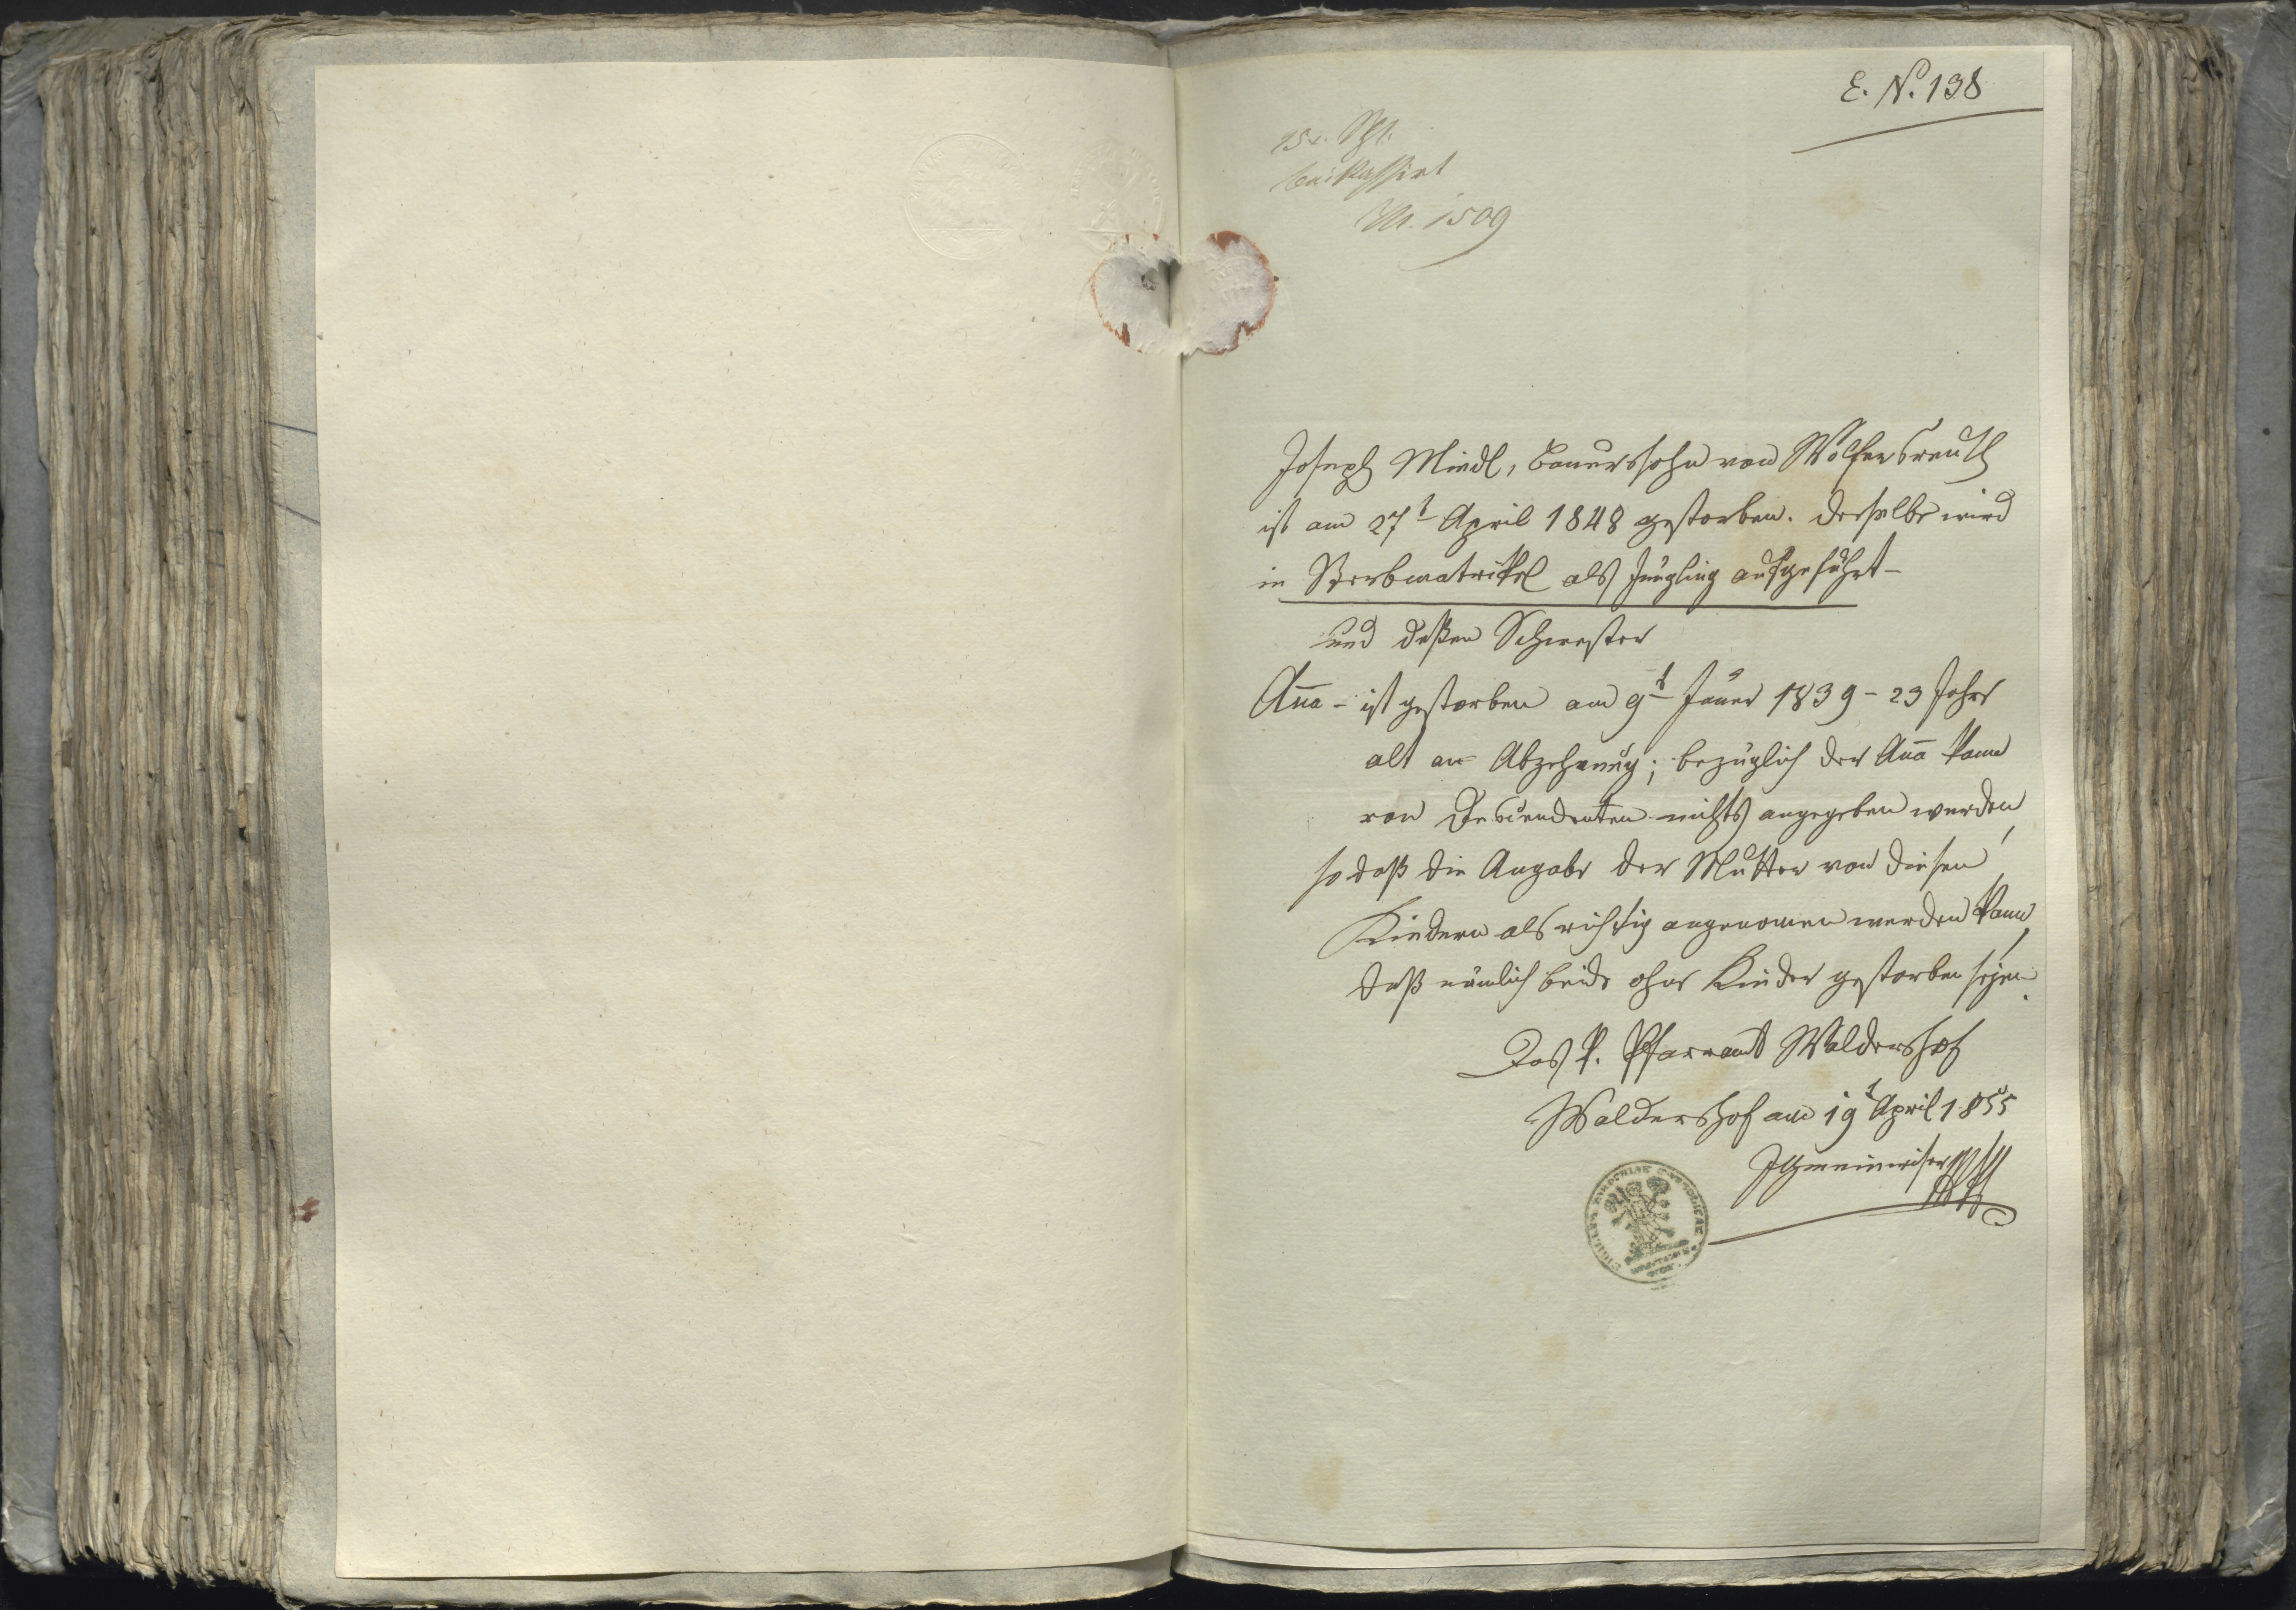 E. N. 138
15 x. Spl.
beikassirt
Nr. 1509
Joseph Miedl, Bauerssohn von Wolfersreuth
ist am 27t April 1848 gestorben. Derselbe wird
in Sterbmatrikel als Jüngling aufgeführt -
und deßen Schwester
Aña - ist gestorben am 9t Jäner 1839 - 23 Jahre
alt an Abzehrung; bezüglich der Aña kann
von Descendenten nichts angegeben werden,
so daß die Angabe der Mutter von diesen
Kindern als richtig angenomen werden kann,
daß nämlich beide ohne Kinder gestorben seyen.
Das k. Pfarramt Waldershof
Waldershof am 19t April 1855